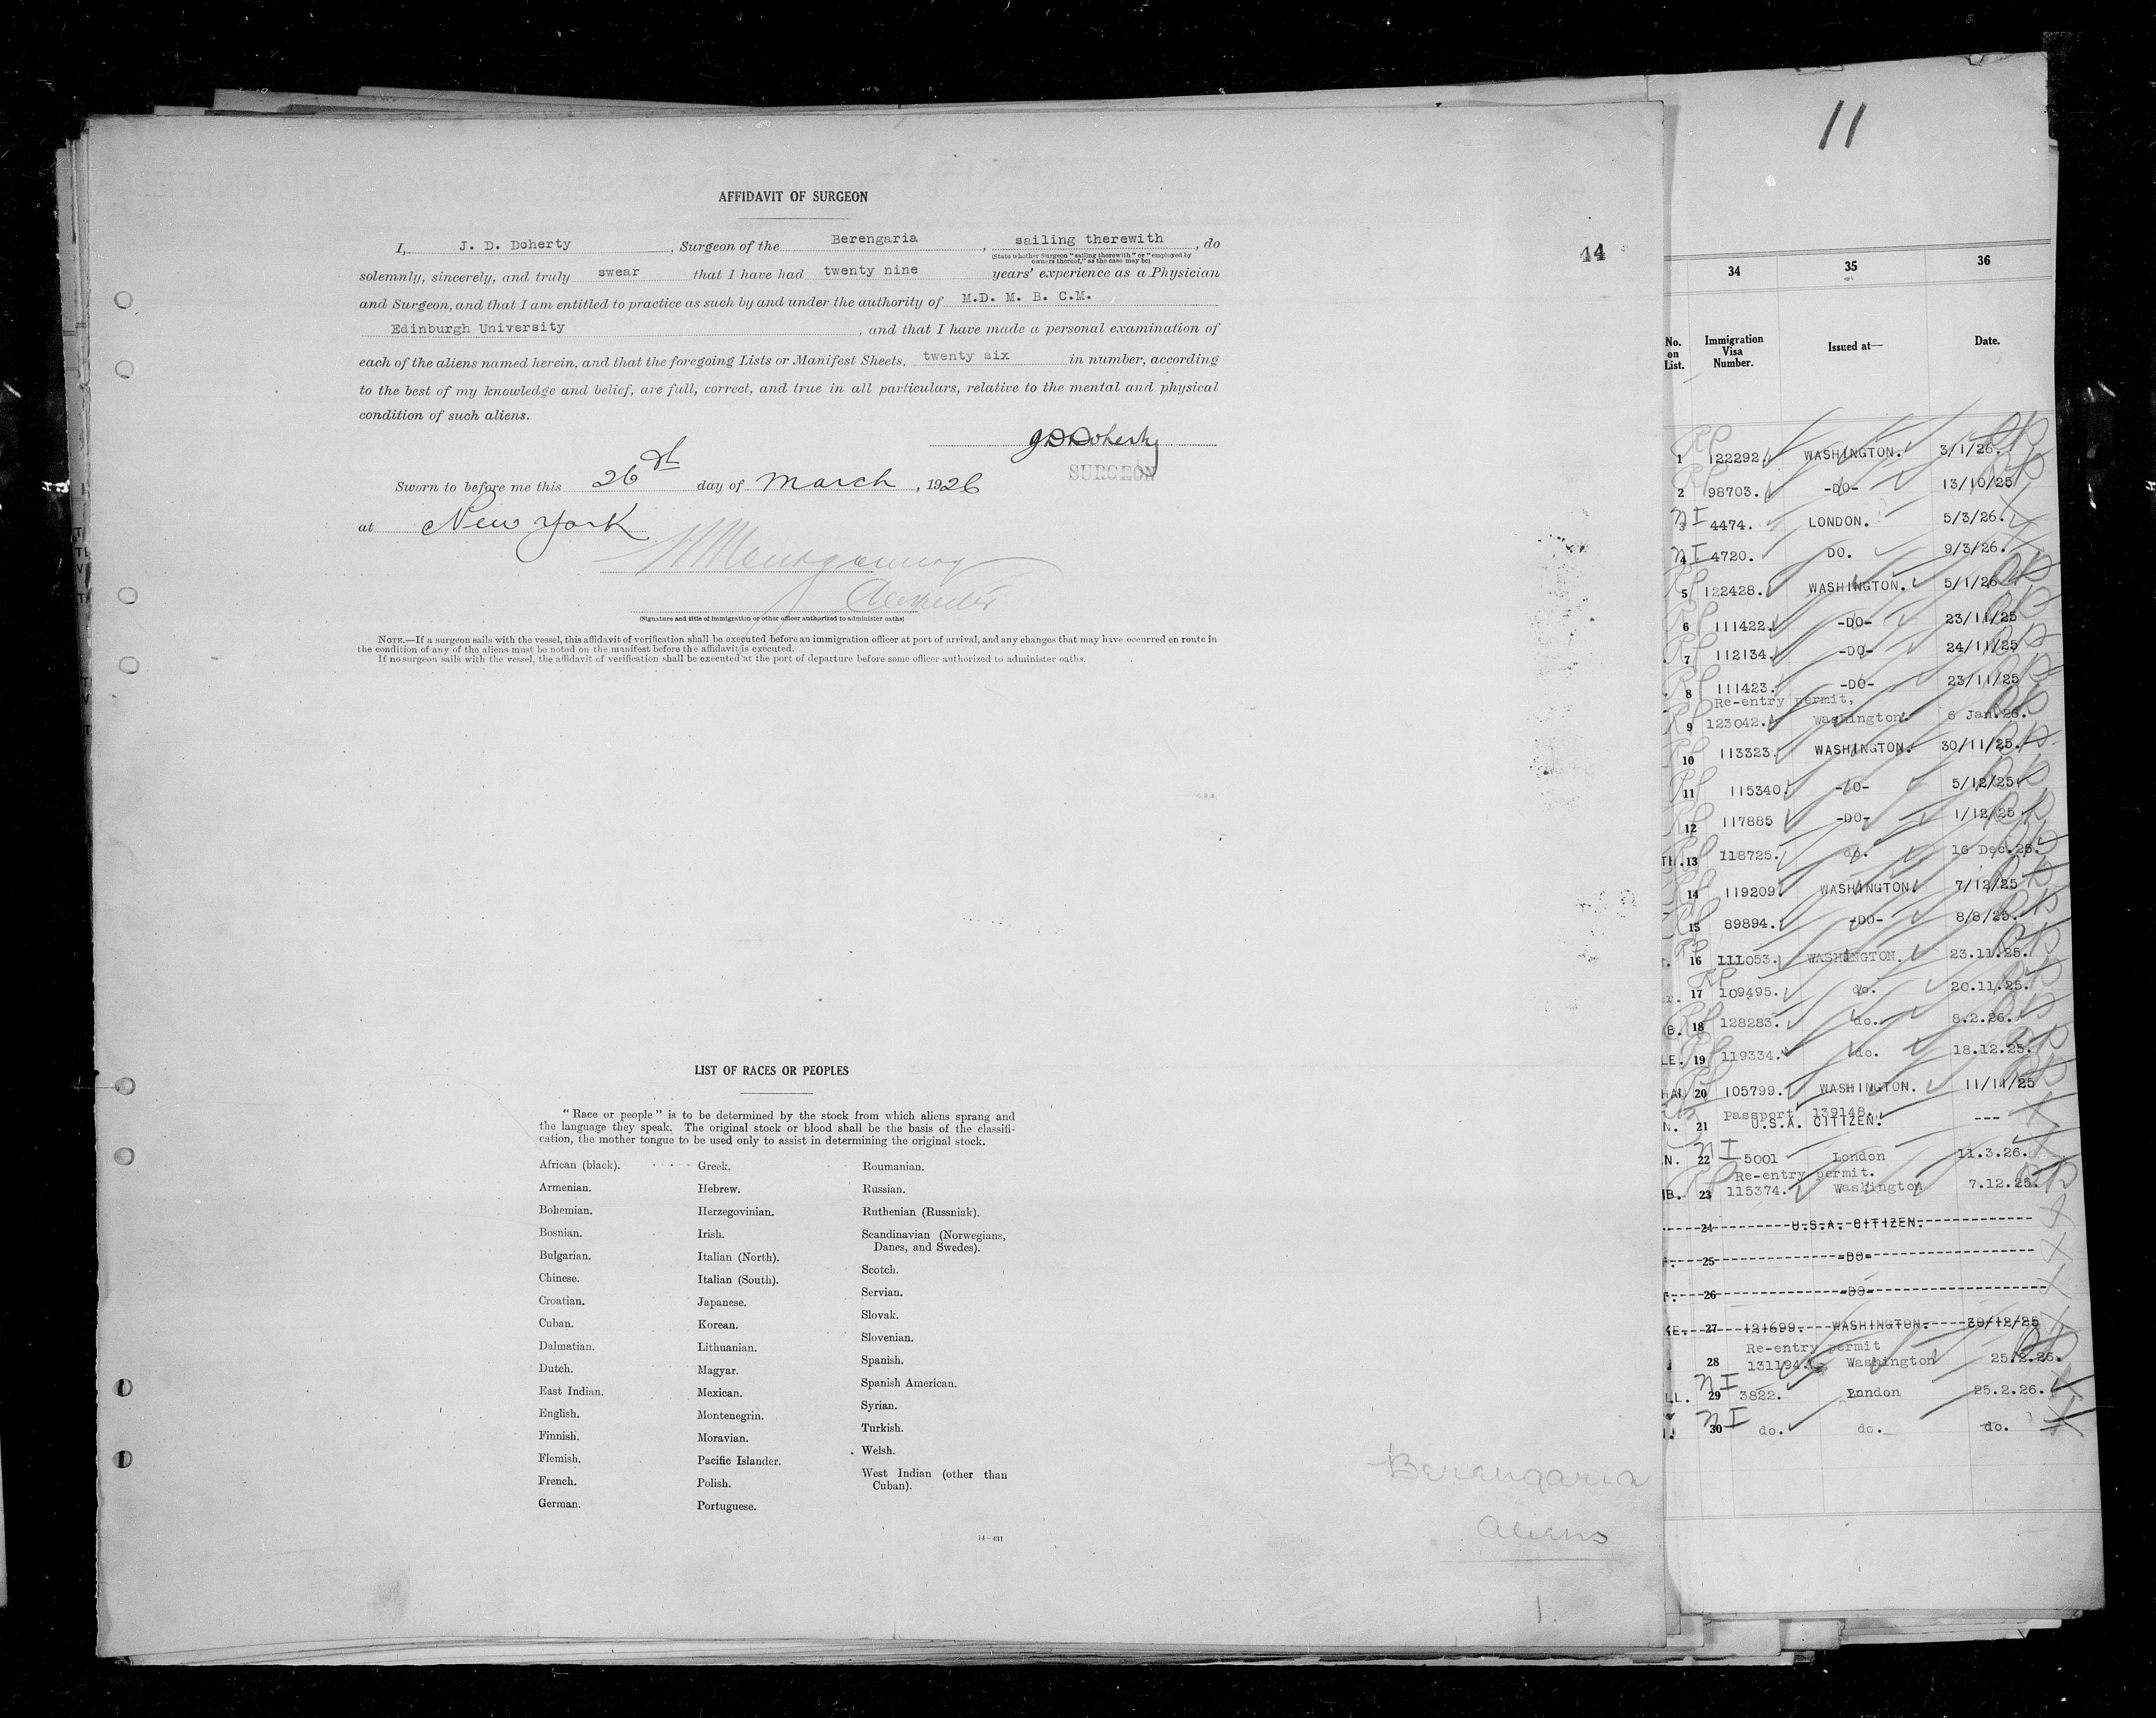 AFFIDAVIT OF SURGEON
I, J. D. Doherty, Surgeon of the Berengaria, sailing therewith, do
(State whether Surgeon "sailing therewith" or "employed by
owners thereof," as the case may be)
solemnly, sincerely, and truly swear that I have had twenty nine years' experience as a Physician
and Surgeon, and that I am entitled to practice as such by and under the authority of M.D. M. B. C.M.
Edinburgh University, and that I have made a personal examination of
each of the aliens named herein, and that the foregoing Lists or Manifest Sheets, twenty six in number, according
to the best of my knowledge and belief, are full, correct, and true in all particulars, relative to the mental and physical
condition of such aliens.
JDDoherty
SURGEON
Sworn to before me this 26th day of March, 1926
at New York
Montgomery
(Signature and title of immigration or other officer authorized to administer oaths)
NOTE.—If a surgeon sails with the vessel, this affidavit of verification shall be executed before an immigration officer at port of arrival, and any changes that may have occurred en route in
the condition of any of the aliens must be noted on the manifest before the affidavit is executed.
If no surgeon sails with the vessel, the affidavit of verification shall be executed at the port of departure before some officer authorized to administer oaths.
44
LIST OF RACES OR PEOPLES
"Race or people" is to be determined by the stock from which aliens sprang and
the language they speak. The original stock or blood shall be the basis of the classifi-
cation, the mother tongue to be used only to assist in determining the original stock.
African (black).
Armenian.
Bohemian.
Bosnian.
Bulgarian.
Chinese.
Croatian.
Cuban.
Dalmatian.
Dutch.
East Indian.
English.
Finnish.
Flemish.
French.
German.
Greek.
Hebrew.
Herzegovinian.
Irish.
Italian (North).
Italian (South).
Japanese.
Korean.
Lithuanian.
Magyar.
Mexican.
Montenegrin.
Moravian.
Pacific Islander.
Polish.
Portuguese.
Roumanian.
Russian.
Ruthenian (Russniak).
Scandinavian (Norwegians,
Danes, and Swedes).
Scotch.
Servian.
Slovak.
Slovenian.
Spanish.
Spanish American.
Syrian.
Turkish.
Welsh.
West Indian (other than
Cuban).
14—431
Berengaria
Aliens
1.
11
34 35 36
No. on List. Immigration Visa Number. Issued at— Date.
RP 1 122292. WASHINGTON. 3/1/26. RP
RP 2 98703. -DO- 13/10/25 RP
NI 3 4474. LONDON. 5/3/26.
NI 4 4720. DO. 9/3/26.
RP 5 122428. WASHINGTON. 5/1/26 RP
RP 6 111422. -DO- 23/11/25 RP
RP 7 112134. -DO- 24/11/25 RP
RP 8 111423. -DO- 23/11/25 RP
Re-entry permit,
RP 9 123042. Washington. 6 Jan.26. RP
RP 10 113323. WASHINGTON. 30/11/25. RP
RP 11 115340. -DO- 5/12/25 RP
RP 12 117885 -DO- 1/12/25 RP
TH. RP 13 118725. do. 16 Dec.25. RP
RP 14 119209. WASHINGTON. 7/12/25 RP
RP 15 89894. -DO- 8/8/25. RP
RP 16 111053. WASHINGTON. 23.11.25. RP
RP 17 109495. do. 20.11.25. RP
B. RP 18 128283. do. 8.2.26. RP
LE. RP 19 119334. do. 18.12.25. RP
HAN RP 20 105799. WASHINGTON. 11/11/25 RP
Passport 139148.
N. 21 U.S.A. CITIZEN. ---
N. 22 NI 5001 London 11.3.26.
Re-entry permit.
B. RP 23 115374. Washington 7.12.25. RP
24 U.S.A. CITIZEN.
25 -DO-
26 -DO-
KE. 27 121699. WASHINGTON. 30/12/25
Re-entry permit
28 131194. Washington 25.2.26. RP
LL. NI 29 3822. London 25.2.26.
NI 30 do. do. do.